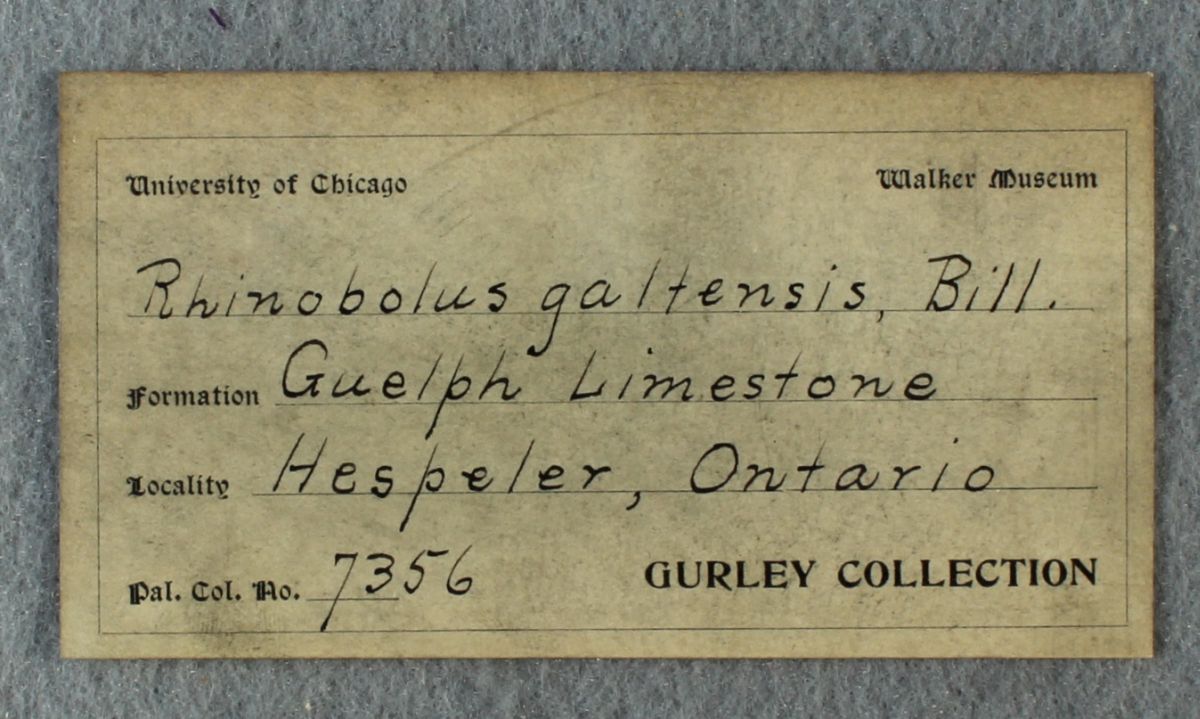 University of Chicago Walker Museum
Rhinobolus galtensis, Bill.
Formation Guelph Limestone
Locality Hespeler, Ontario
Pal. Col. No. 7356 GURLEY COLLECTION